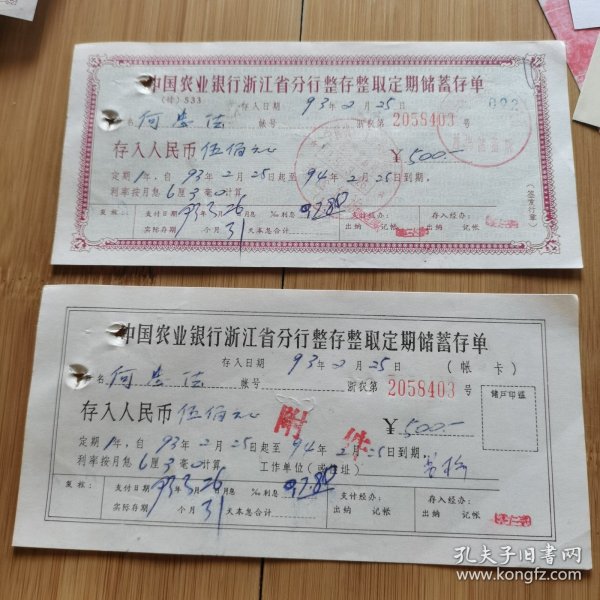 中国农业银行浙江省分行整存整取定期储蓄存单
(储) S33 存入日期 93年2月25日
名 何 法 帐号 浙农第 2058403 号
存入人民币伍佰元 ¥500.-
定期1年，自93年2月25日起至94年2月25日到期。
利率按月息6厘3毫0计算。
(签发行章)
复核： 支付日期93年3月26 月息 ‰利息 支付经办： 存入经办：
实际存期 个月31天本息合计 出纳 记帐 出纳 记帐
中国农业银行浙江省分行整存整取定期储蓄存单
存入日期 93年2月25日 (帐 卡)
名 何 法 帐号 浙农第 2058403 号
储户印鉴
存入人民币伍佰元 ¥500.-
附件
定期1年，自93年2月25日起至94年2月25日到期。
利率按月息6厘3毫0计算 工作单位(或住址)
复核： 支付日期93年3月26 月息 ‰利息 支付经办： 存入经办：
实际存期 个月31天本息合计 出纳 记帐 出纳 记帐
孔夫子旧书网
www.kongfz.com